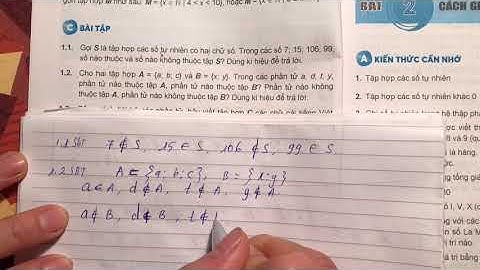 gồm tập hợp M như sau: M = {x ∈ | 4 < x < 10}, hoặc M =
C BÀI TẬP
1.1. Gọi S là tập hợp các số tự nhiên có hai chữ số. Trong các số 7; 15; 106; 99,
số nào thuộc và số nào không thuộc tập S? Dùng kí hiệu để trả lời.
1.2. Cho hai tập hợp A = {a; b; c} và B = {x; y}. Trong các phần tử a, d, t, y,
phần tử nào thuộc tập A, phần tử nào thuộc tập B? Phần tử nào không
thuộc tập A, phần tử nào không thuộc tập B? Dùng kí hiệu để trả lời.
BÀI 2 CÁCH
A KIẾN THỨC CẦN NHỚ
1. Tập hợp các số tự nhiên
2. Tập hợp các số tự nhiên khác 0
1.1 SBT 7 ∉ S, 15 ∈ S, 106 ∉ S, 99 ∈ S.
1.2 SBT A = {a; b; c}, B = {x; y}
a ∈ A, d ∉ A, t ∉ A, y ∉ A
a ∉ B, d ∉ B, t ∉